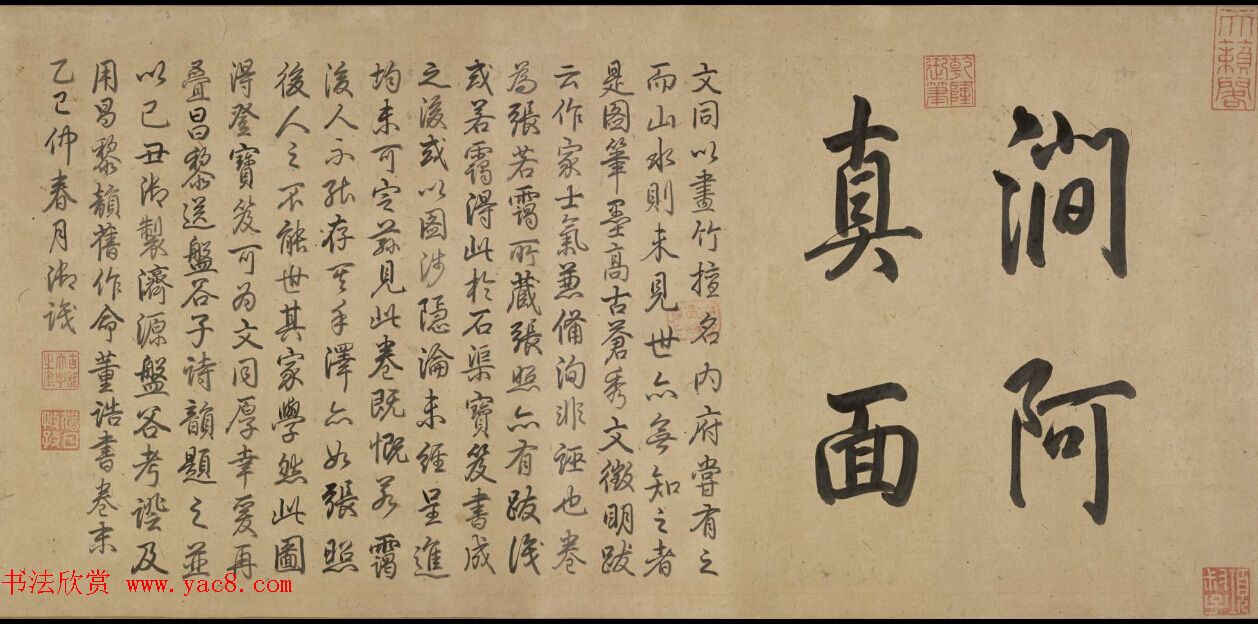 澗阿
真面
乾隆
御筆
天籟閣
文同以畫竹擅名內府嘗有之
而山水則未見世亦無知之者
是圖筆墨高古蒼秀文徵明跋
云作家士氣兼備洵非誣也卷
為張若靄所藏張照亦有跋識
或若靄得此於石渠寶笈書成
之後或以圖涉隱淪未經呈進
均未可定茲見此卷既慨若靄
後人不能存其手澤亦如張照
後人之不能世其家學然此圖
得登寶笈可為文同厚幸爰再
疊昌黎送盤谷子詩韻題之並
以己丑御製濟源盤谷考證及
用昌黎韻舊作命董誥書卷末
乙巳仲春月御識
书法欣赏 www.yac8.com